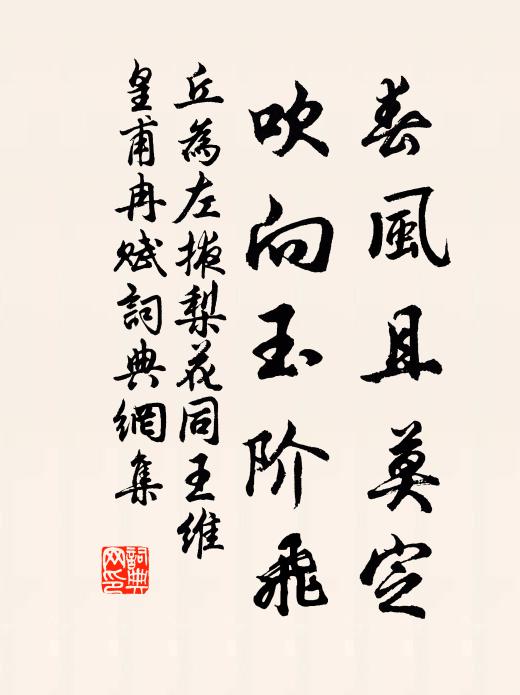 春風且莫定
吹向玉阶飛
丘為左掖梨花同王維
皇甫冉赋詞典網集
詞典网印